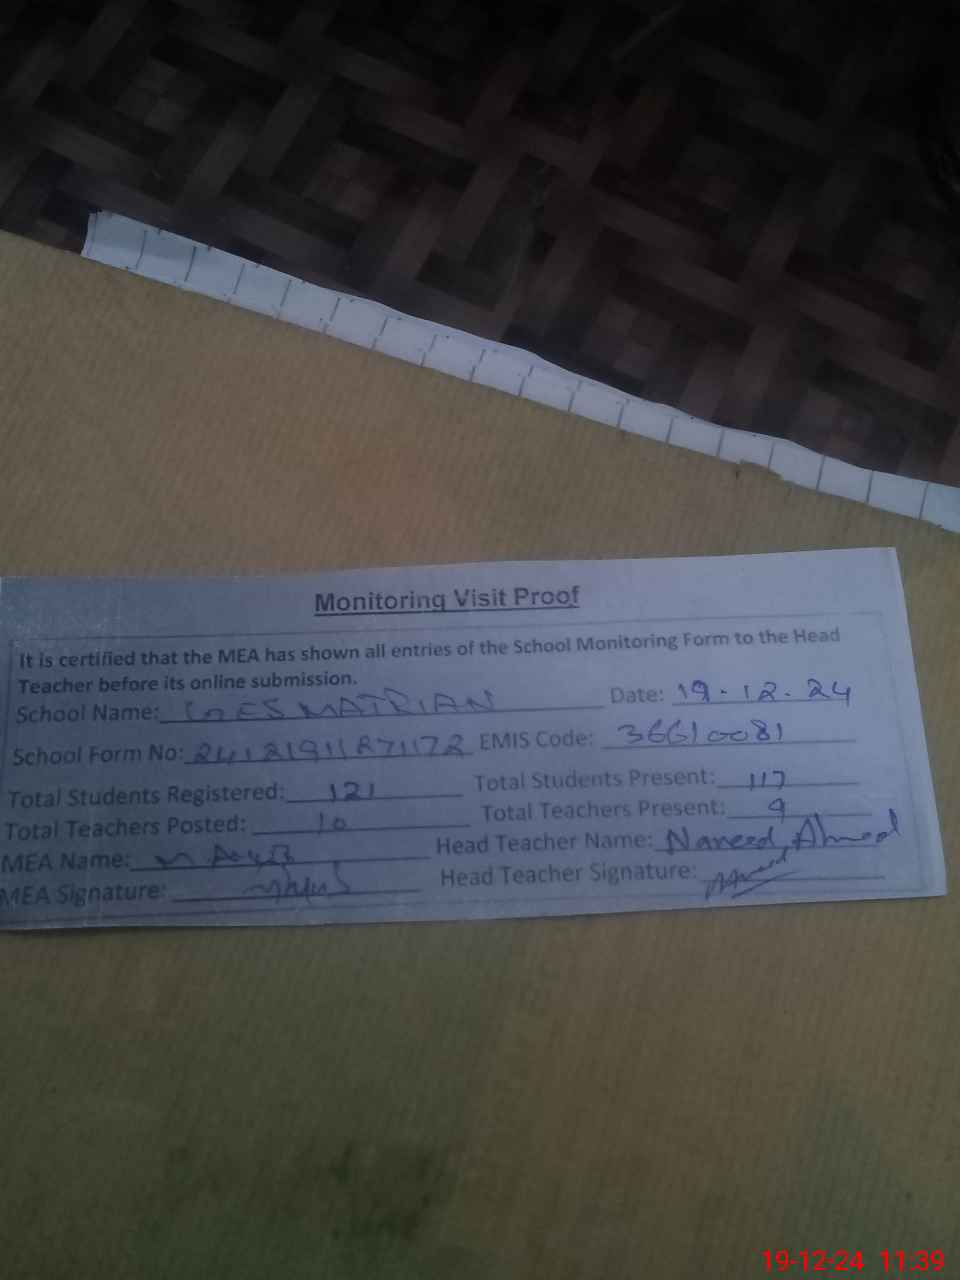 Monitoring Visit Proof
It is certified that the MEA has shown all entries of the School Monitoring Form to the Head
Teacher before its online submission.
School Name: GES MATRIAN Date: 19.12.24
School Form No: 24121911871172 EMIS Code: 36610081
Total Students Registered: 121 Total Students Present: 117
Total Teachers Posted: 10 Total Teachers Present: 9
MEA Name: M. Head Teacher Name: Naveed Ahmed
MEA Signature: Head Teacher Signature:
19-12-24 11:39